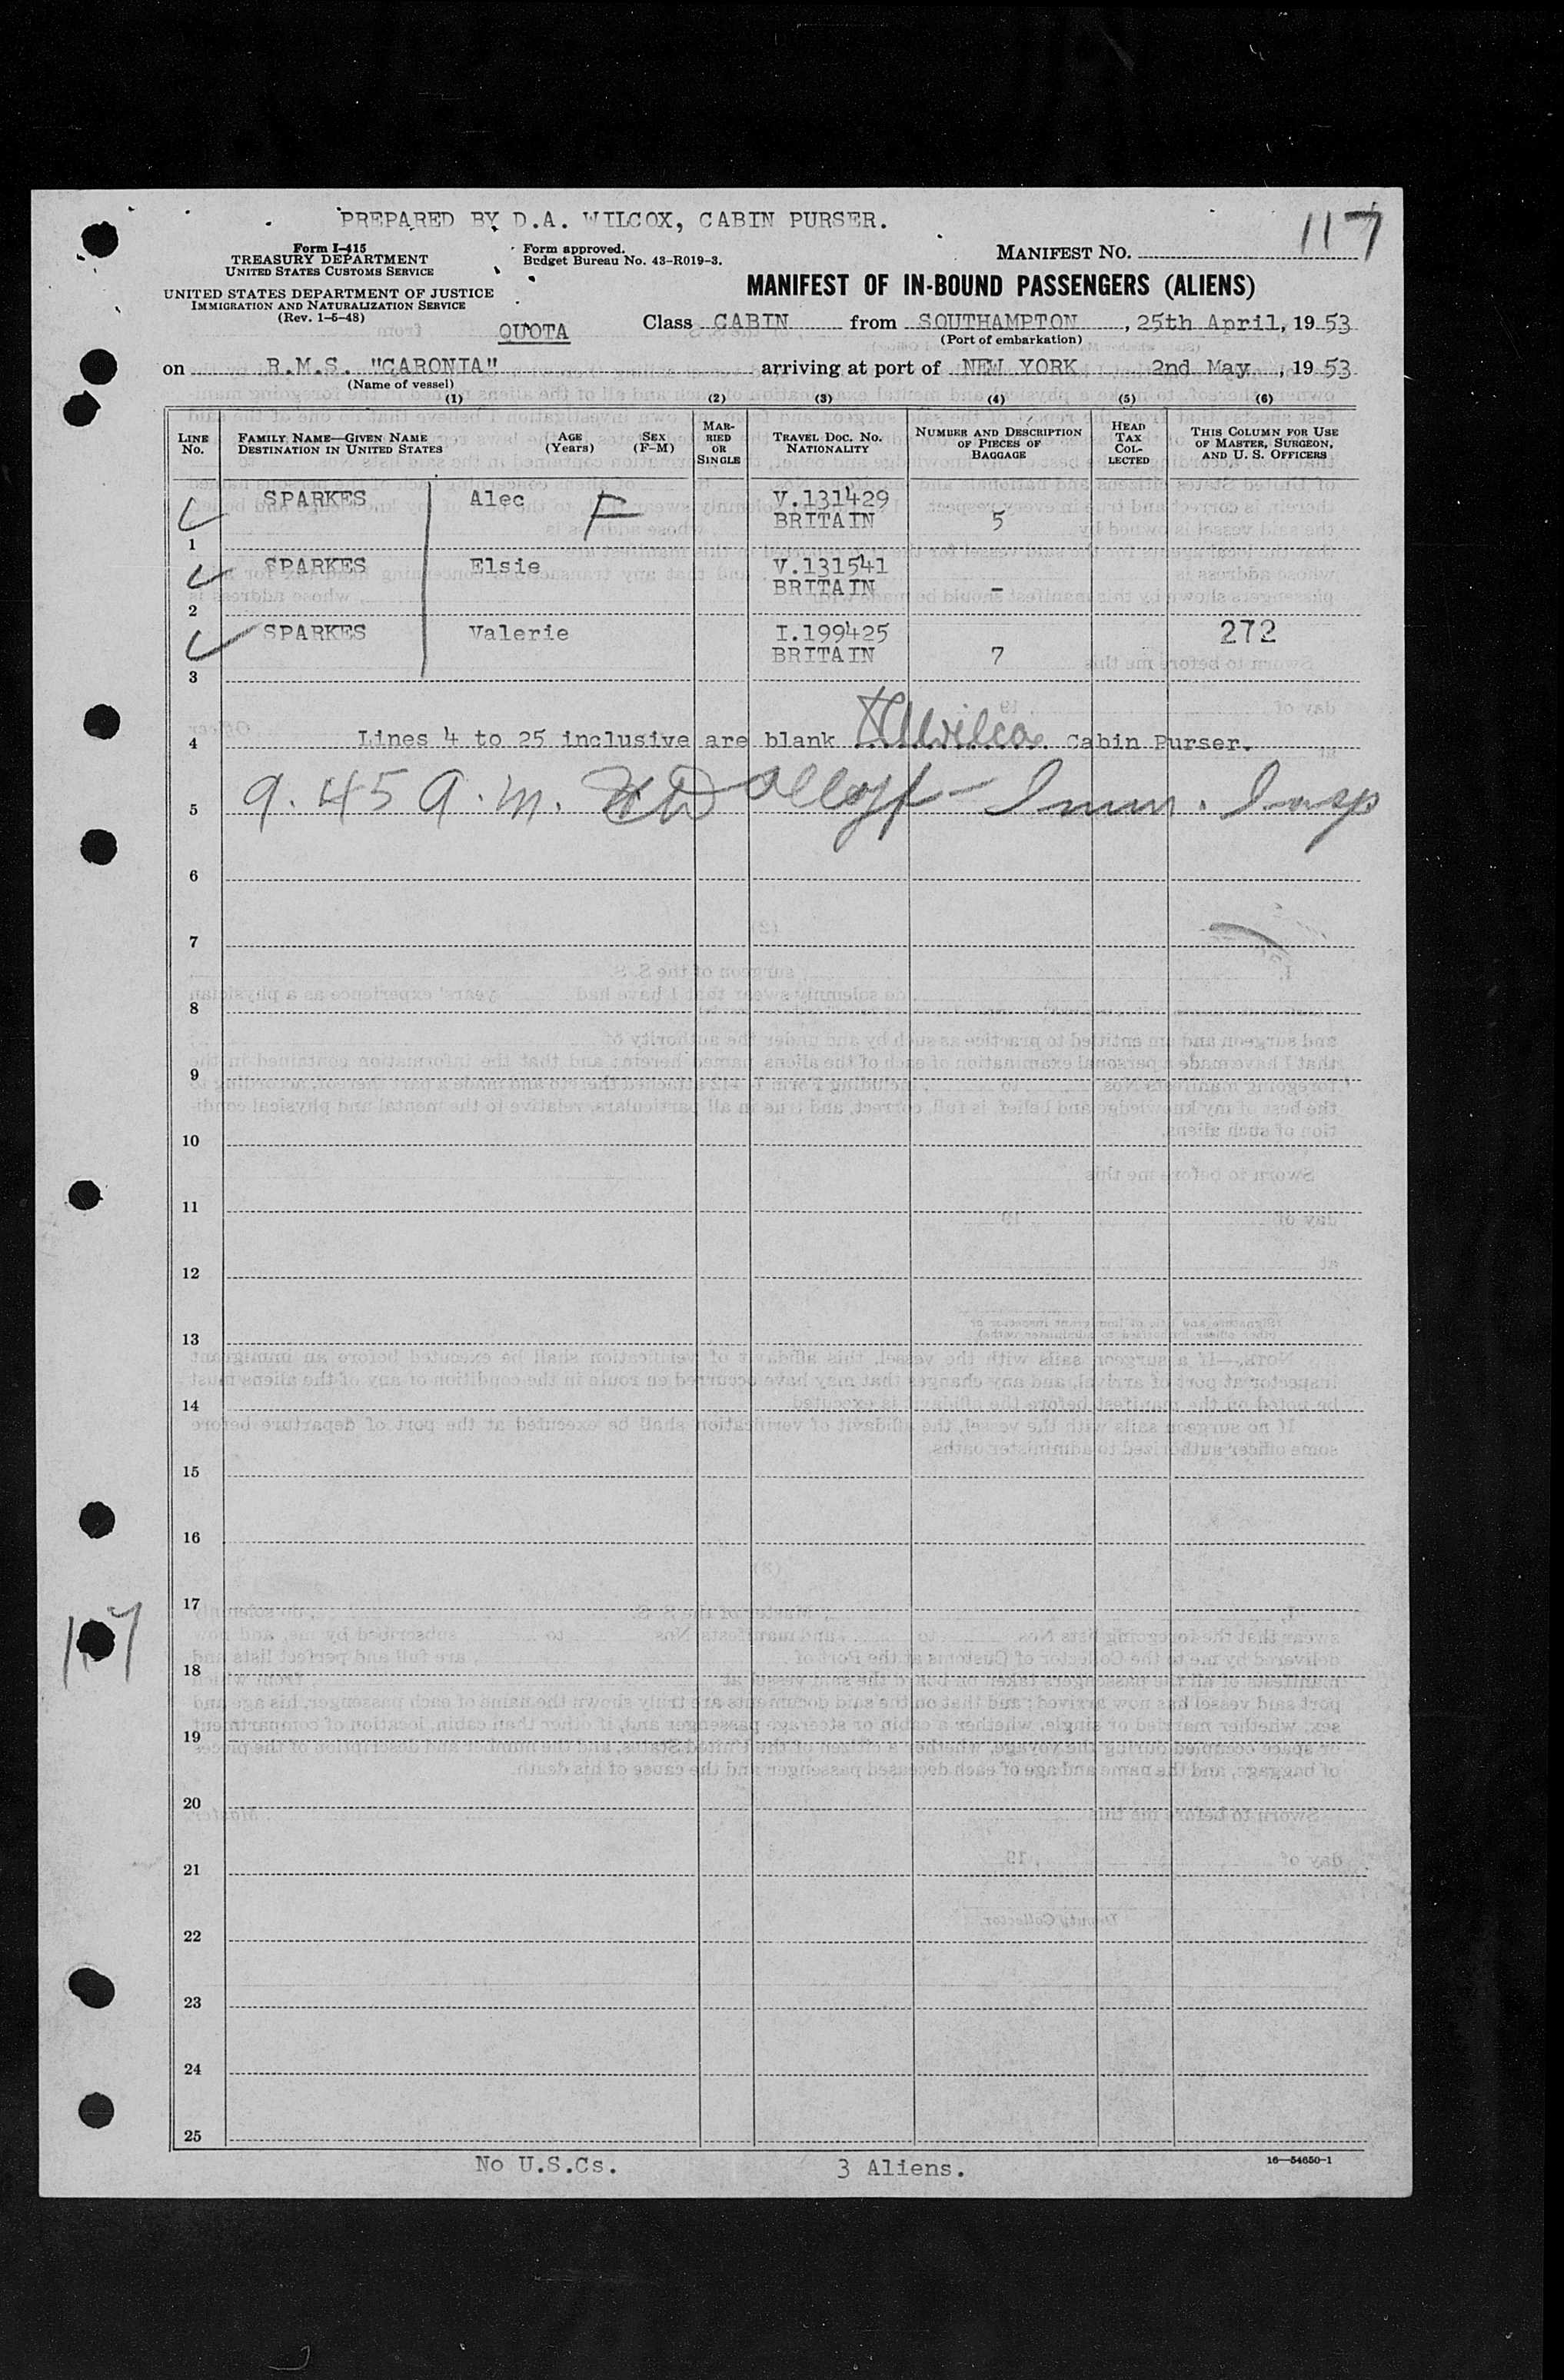 PREPARED BY D.A. WILCOX, CABIN PURSER.
117
Form I-415
TREASURY DEPARTMENT
UNITED STATES CUSTOMS SERVICE
Form approved.
Budget Bureau No. 43-R019-3.
MANIFEST NO.
UNITED STATES DEPARTMENT OF JUSTICE
IMMIGRATION AND NATURALIZATION SERVICE
(Rev. 1-5-48)
MANIFEST OF IN-BOUND PASSENGERS (ALIENS)
QUOTA
Class CABIN from SOUTHAMPTON, 25th April, 1953
(Port of embarkation)
on R.M.S. "CARONIA" arriving at port of NEW YORK 2nd May, 1953
(Name of vessel)
(1) (2) (3) (4) (5) (6)
LINE NO. FAMILY NAME—GIVEN NAME DESTINATION IN UNITED STATES AGE (Years) SEX (F-M) MARRIED OR SINGLE TRAVEL DOC. NO. NATIONALITY NUMBER AND DESCRIPTION OF PIECES OF BAGGAGE HEAD TAX COLLECTED THIS COLUMN FOR USE OF MASTER, SURGEON, AND U. S. OFFICERS
SPARKES Alec F V.131429
1 BRITAIN 5
SPARKES Elsie V.131541
2 BRITAIN -
SPARKES Valerie I.199425 272
3 BRITAIN 7
4 Lines 4 to 25 inclusive are blank Wilcox Cabin Purser.
5 9.45 a.m. Imm. Insp
6
7
8
9
10
11
12
13
14
15
16
17
117
18
19
20
21
22
23
24
25
No U.S.Cs. 3 Aliens. 16—54650-1